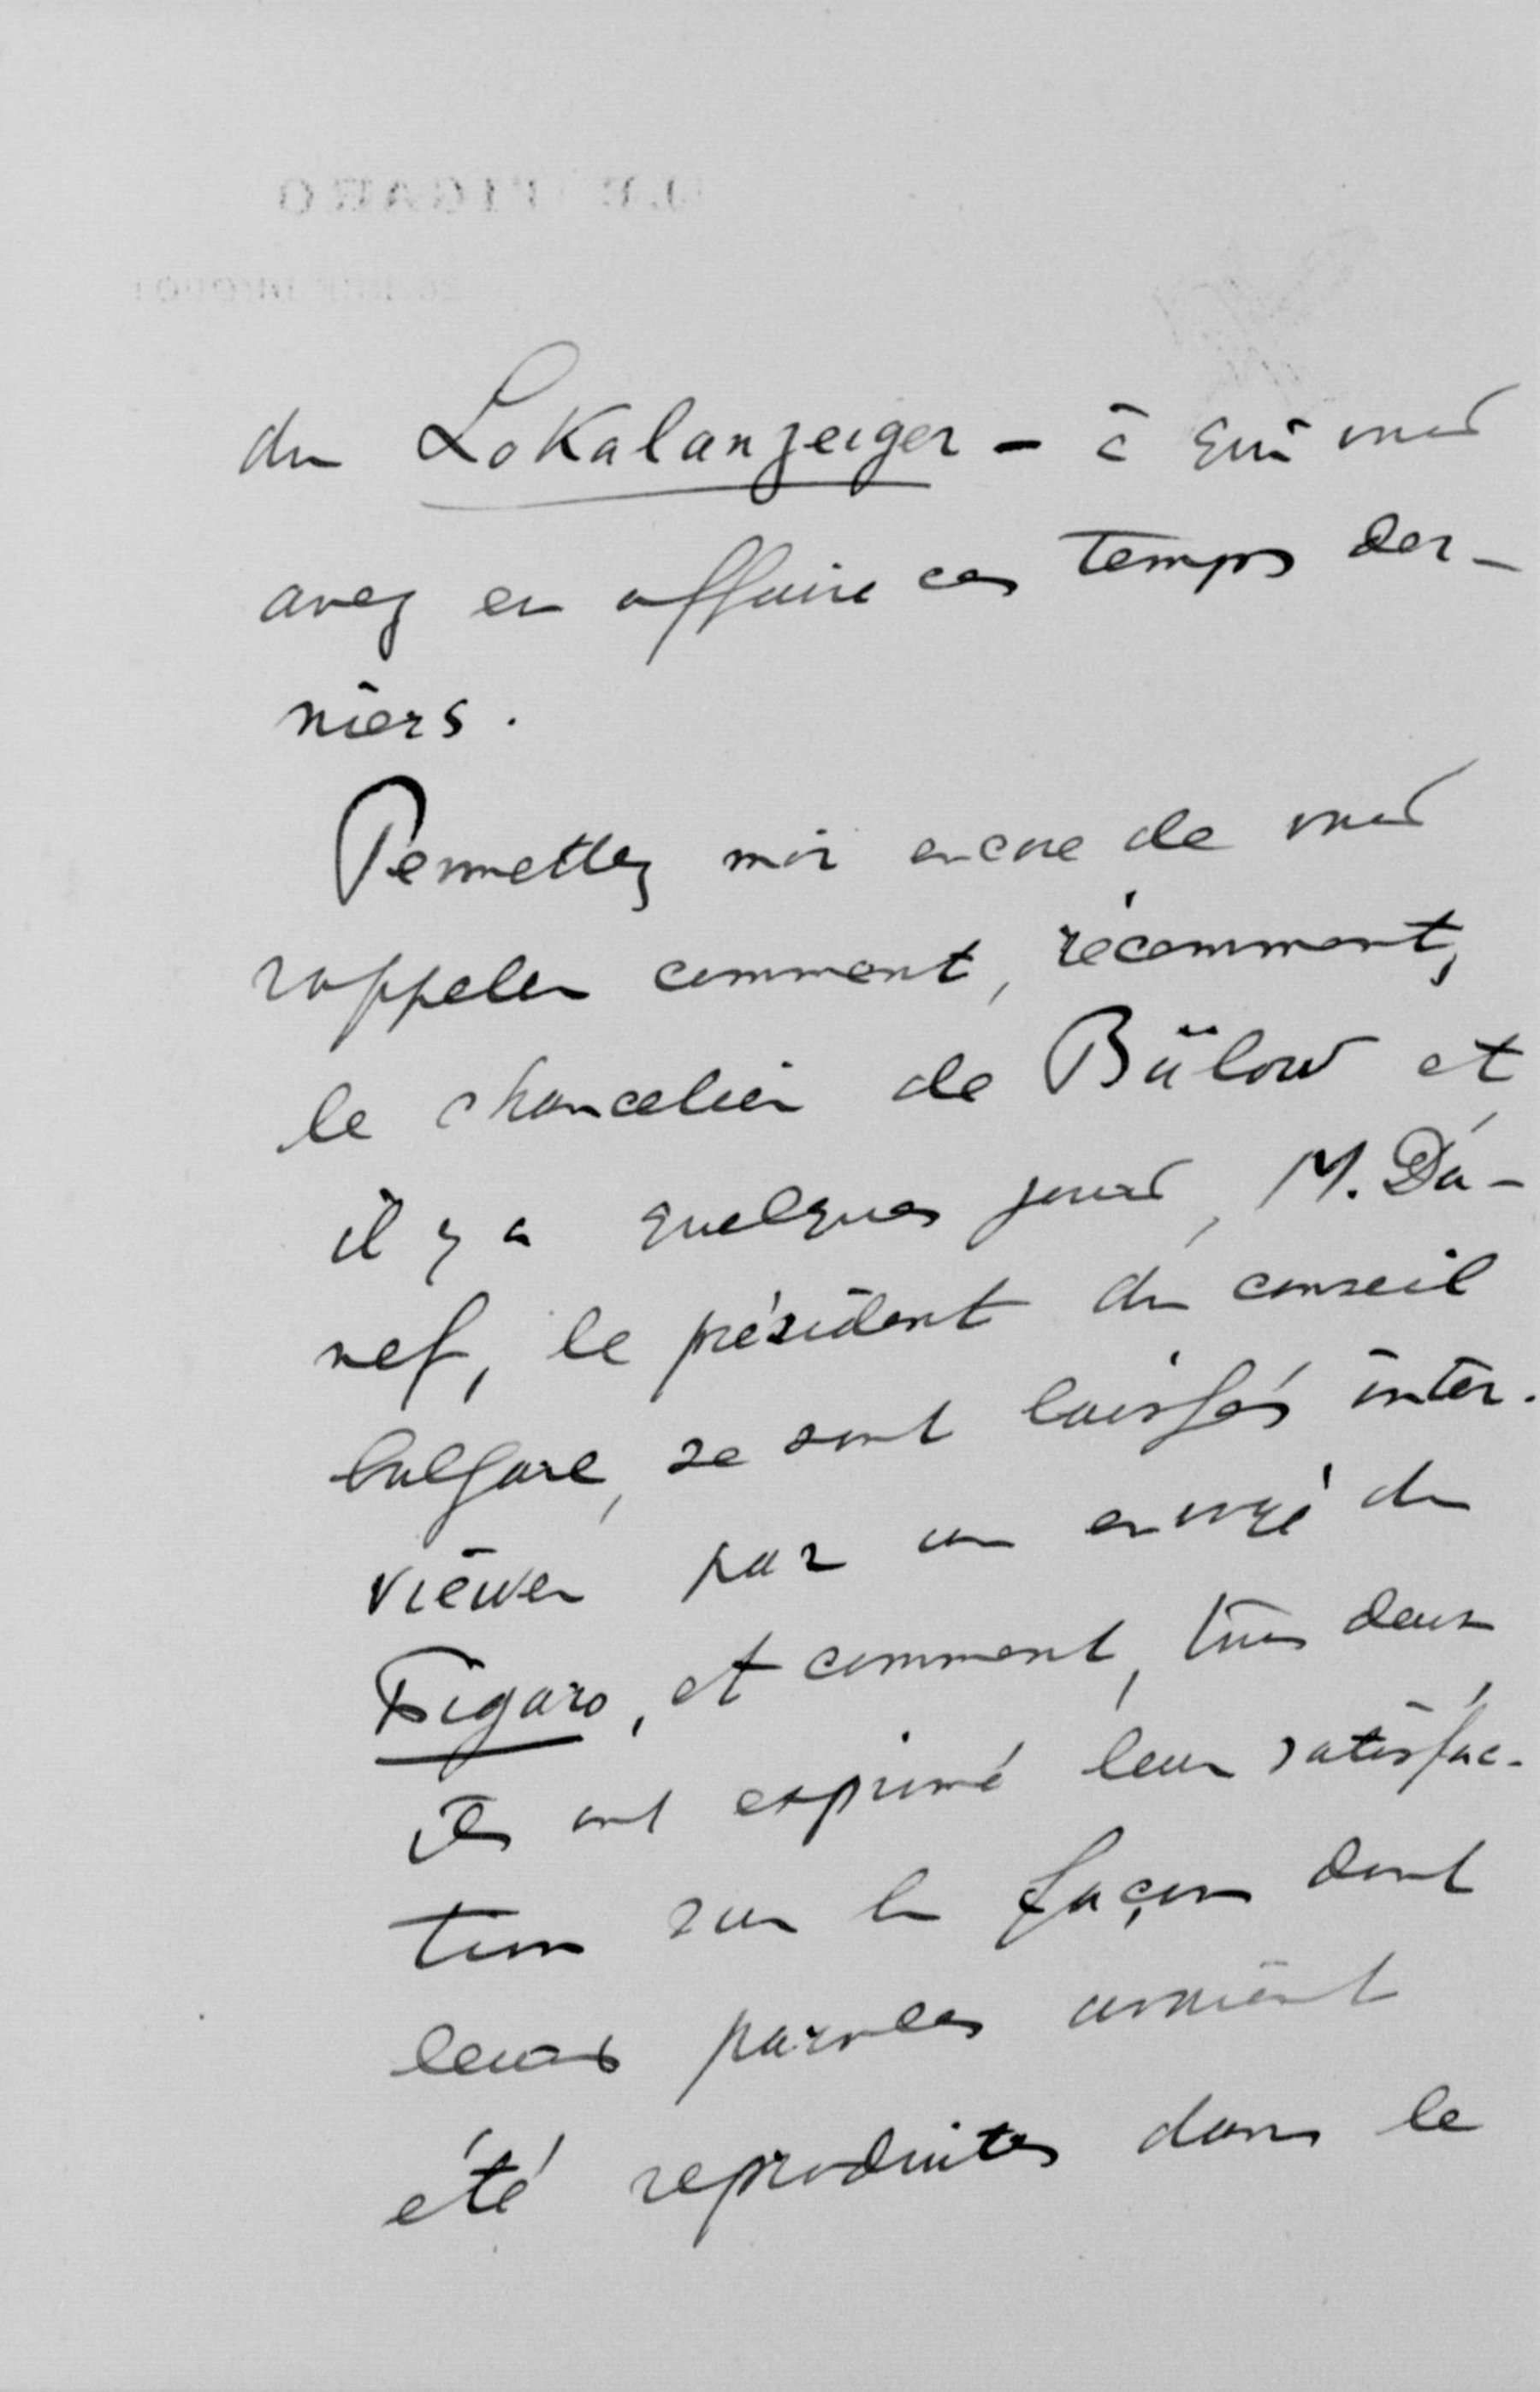 du Lokalanzeiger - à qui vous
avez eu affaire ces temps der-
niers.
Permettez moi encore de vous
rappeler comment, récemment,
le chancelier de Bülow et
il y a quelques jours, M. Da-
nef, le président du conseil
bulgare, se sont laissés inter-
viewer par un envoyé du
Figaro, et comment, tous deux,
ils ont exprimé leur satisfac-
tion sur la façon dont
leurs paroles avaient
été reproduites dans le